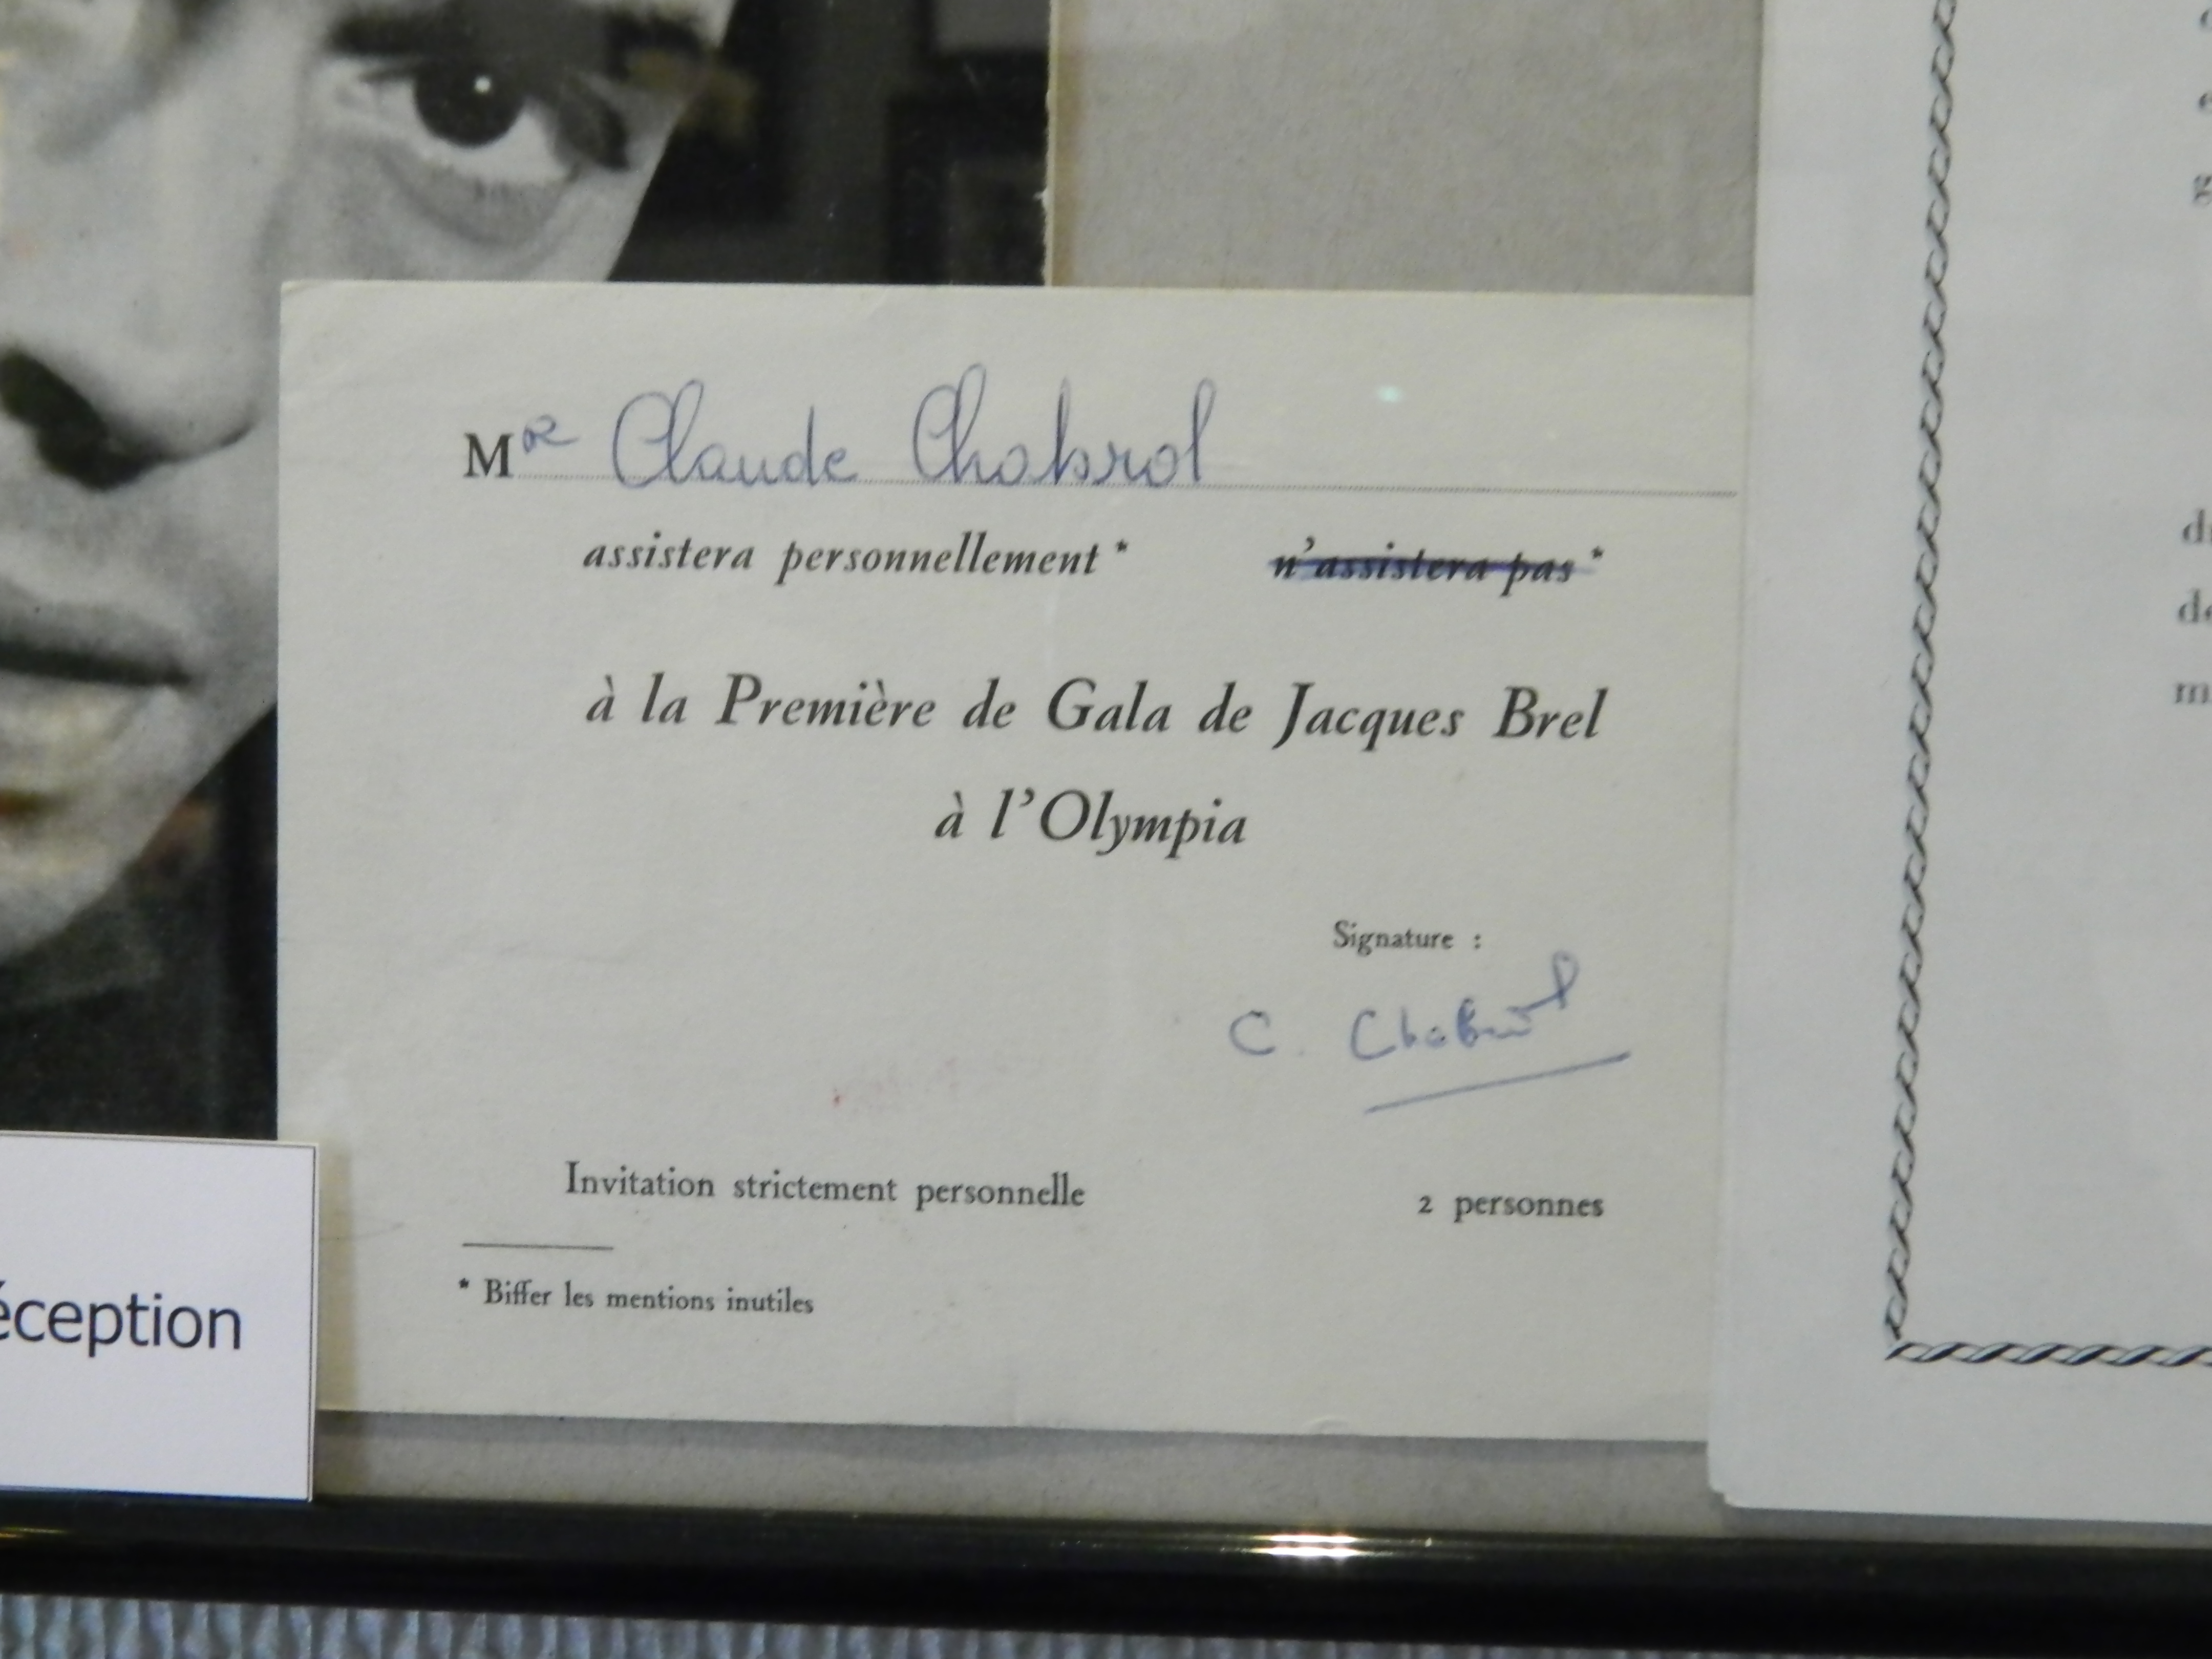 Mr Claude Chabrol
assistera personnellement * n'assistera pas *
à la Première de Gala de Jacques Brel
à l'Olympia
Signature :
C. Chabrol
Invitation strictement personnelle 2 personnes
* Biffer les mentions inutiles
éception